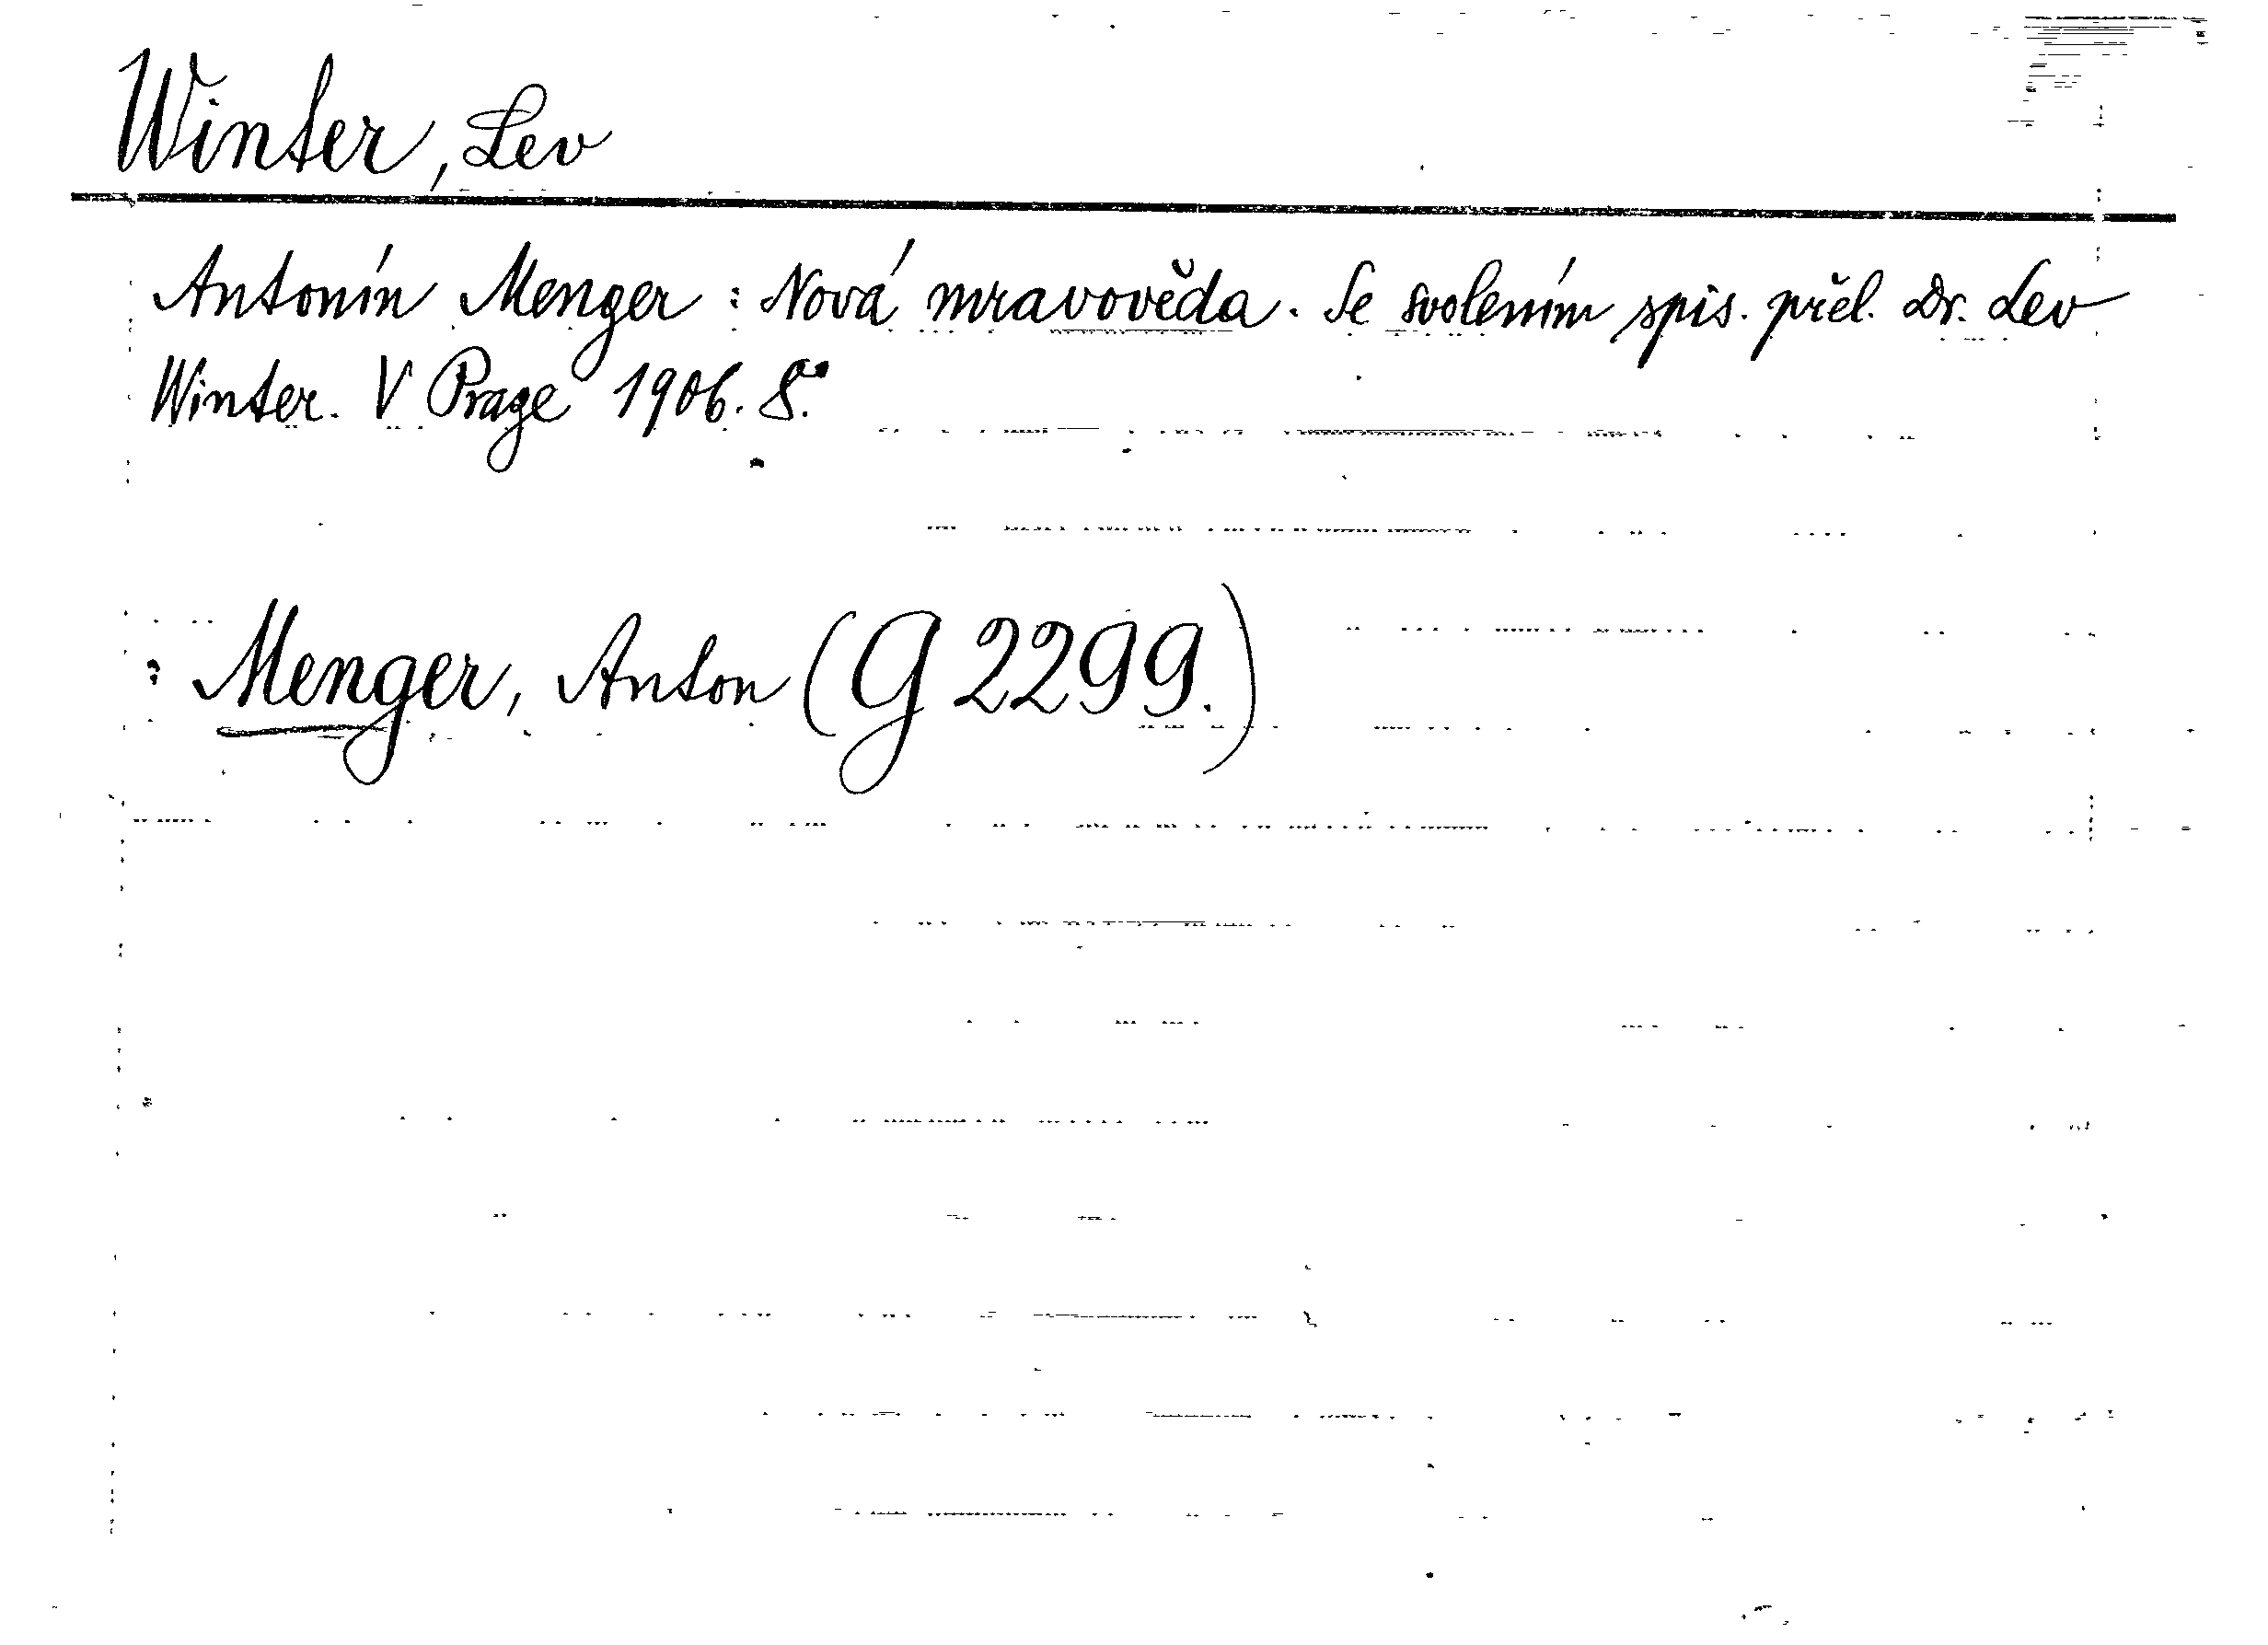 Winter, Lev
Antonín Menger : Nová mravověda. Se svolením spis. přel. Dr. Lev
Winter. V Praze 1906. 8.°
: Menger, Anton (G 2299.)